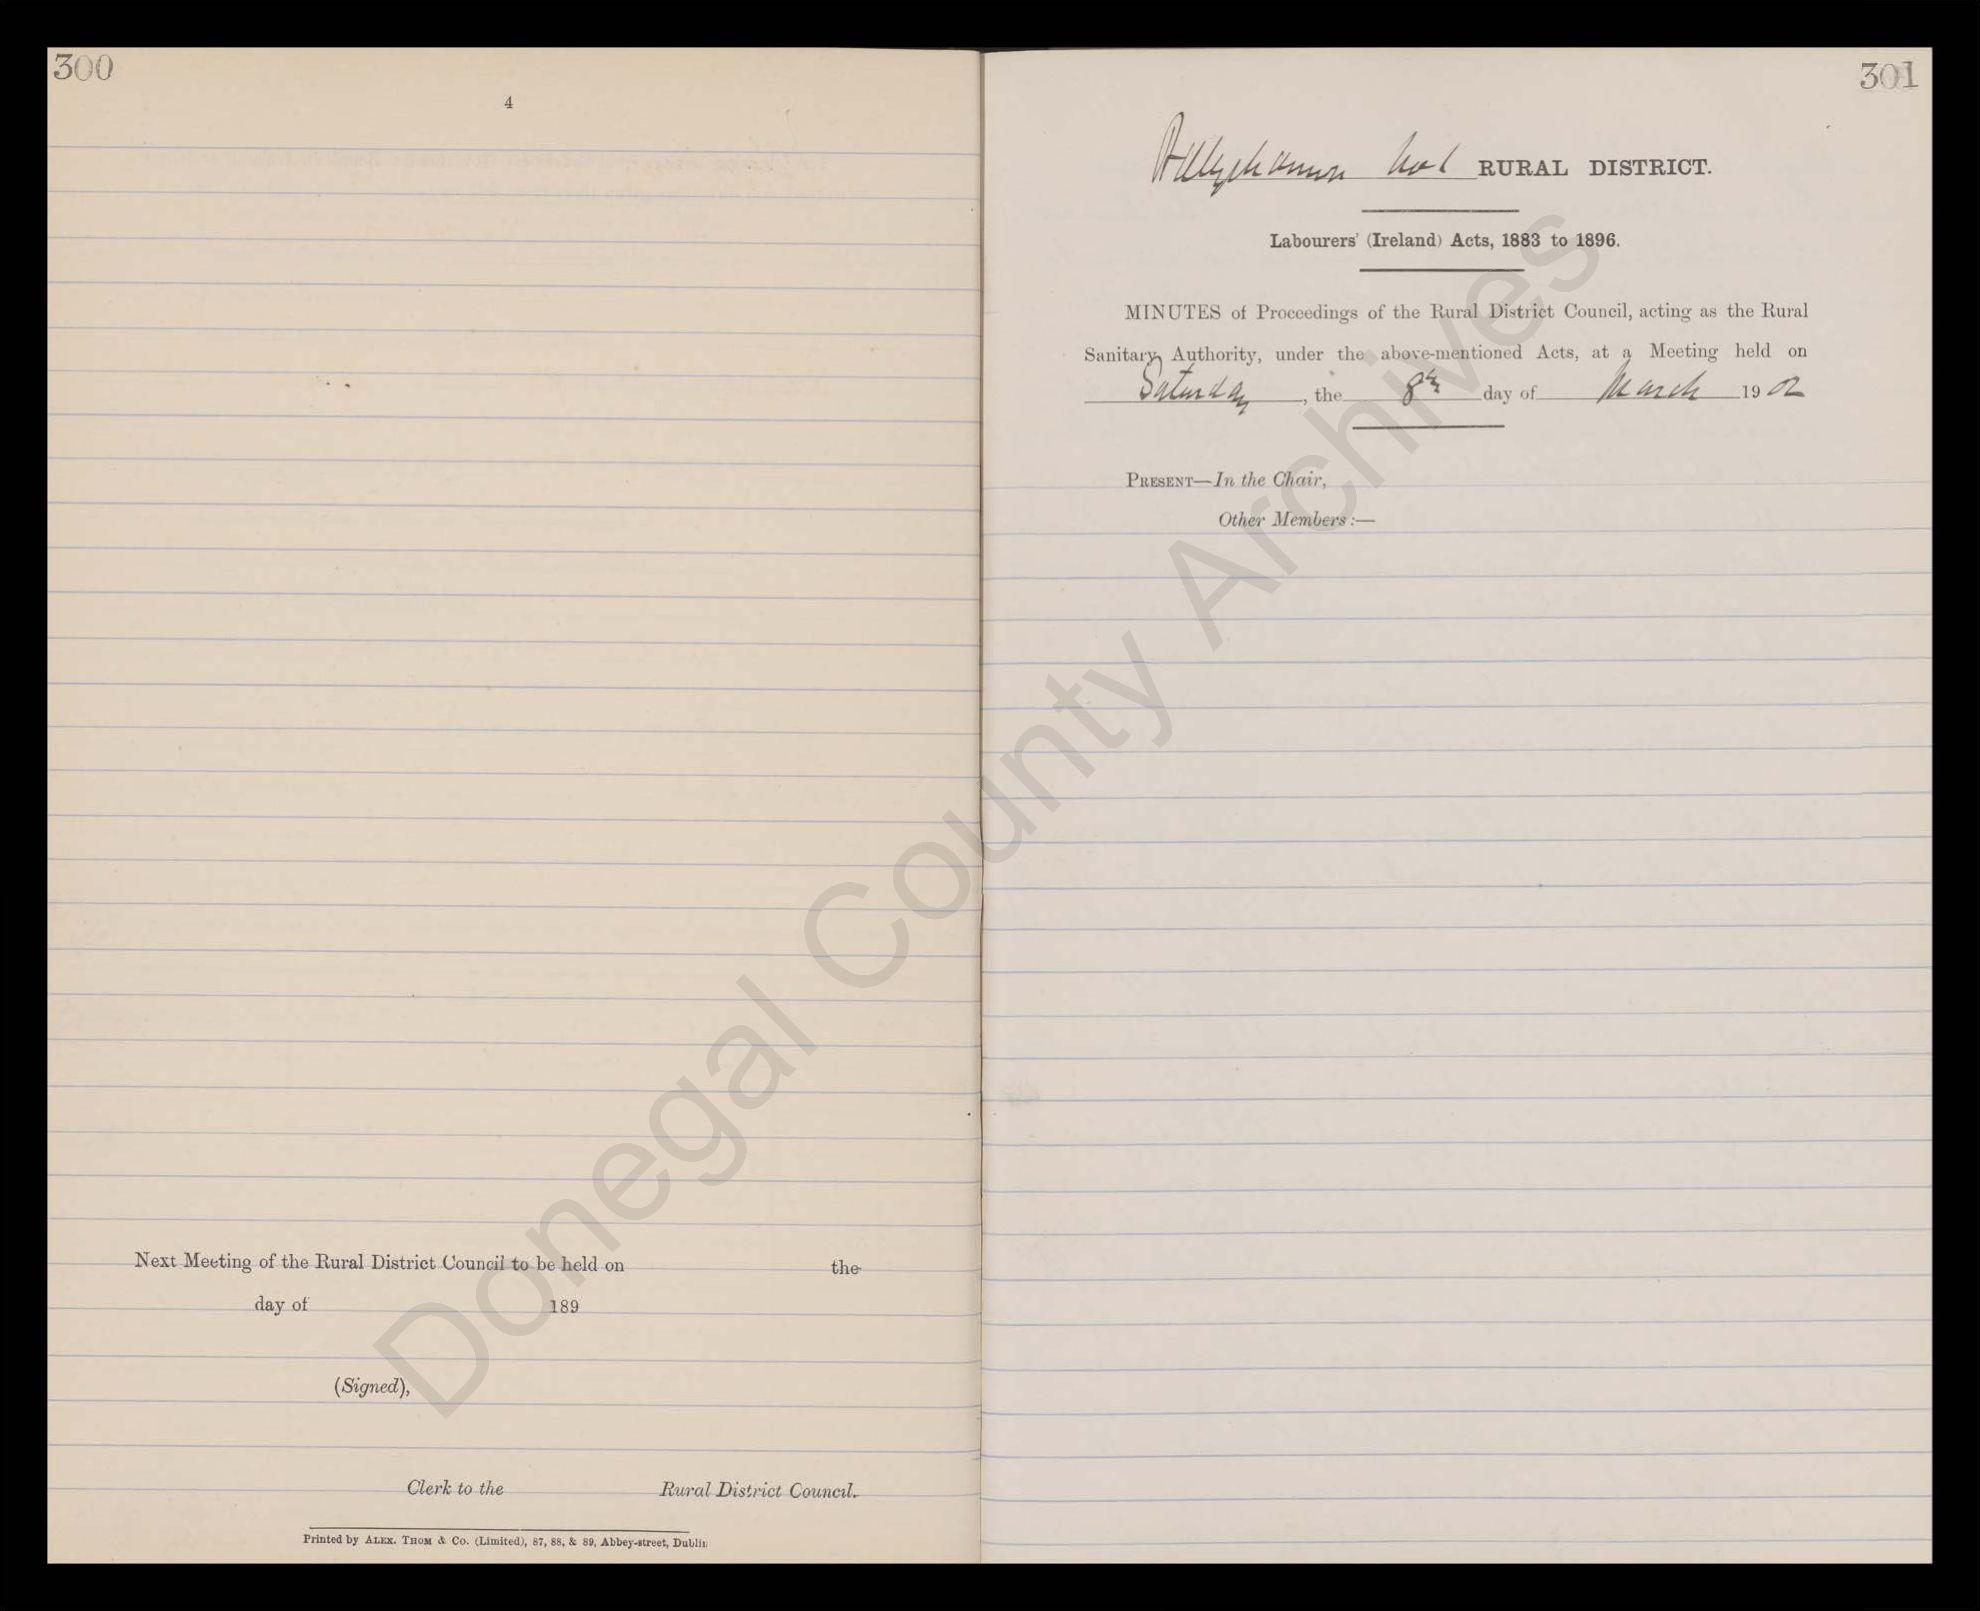 300
4
Next Meeting of the Rural District Council to be held on the
day of 189
(Signed),
Clerk to the Rural District Council.
Printed by ALEX. THOM & Co. (Limited), 87, 88, & 89, Abbey-street, Dublin
301
Ballyshannon No 1 RURAL DISTRICT.
Labourers' (Ireland) Acts, 1883 to 1896.
MINUTES of Proceedings of the Rural District Council, acting as the Rural
Sanitary Authority, under the above-mentioned Acts, at a Meeting held on
Saturday, the 8th day of March 1902
PRESENT—In the Chair,
Other Members:—
Donegal County Archives